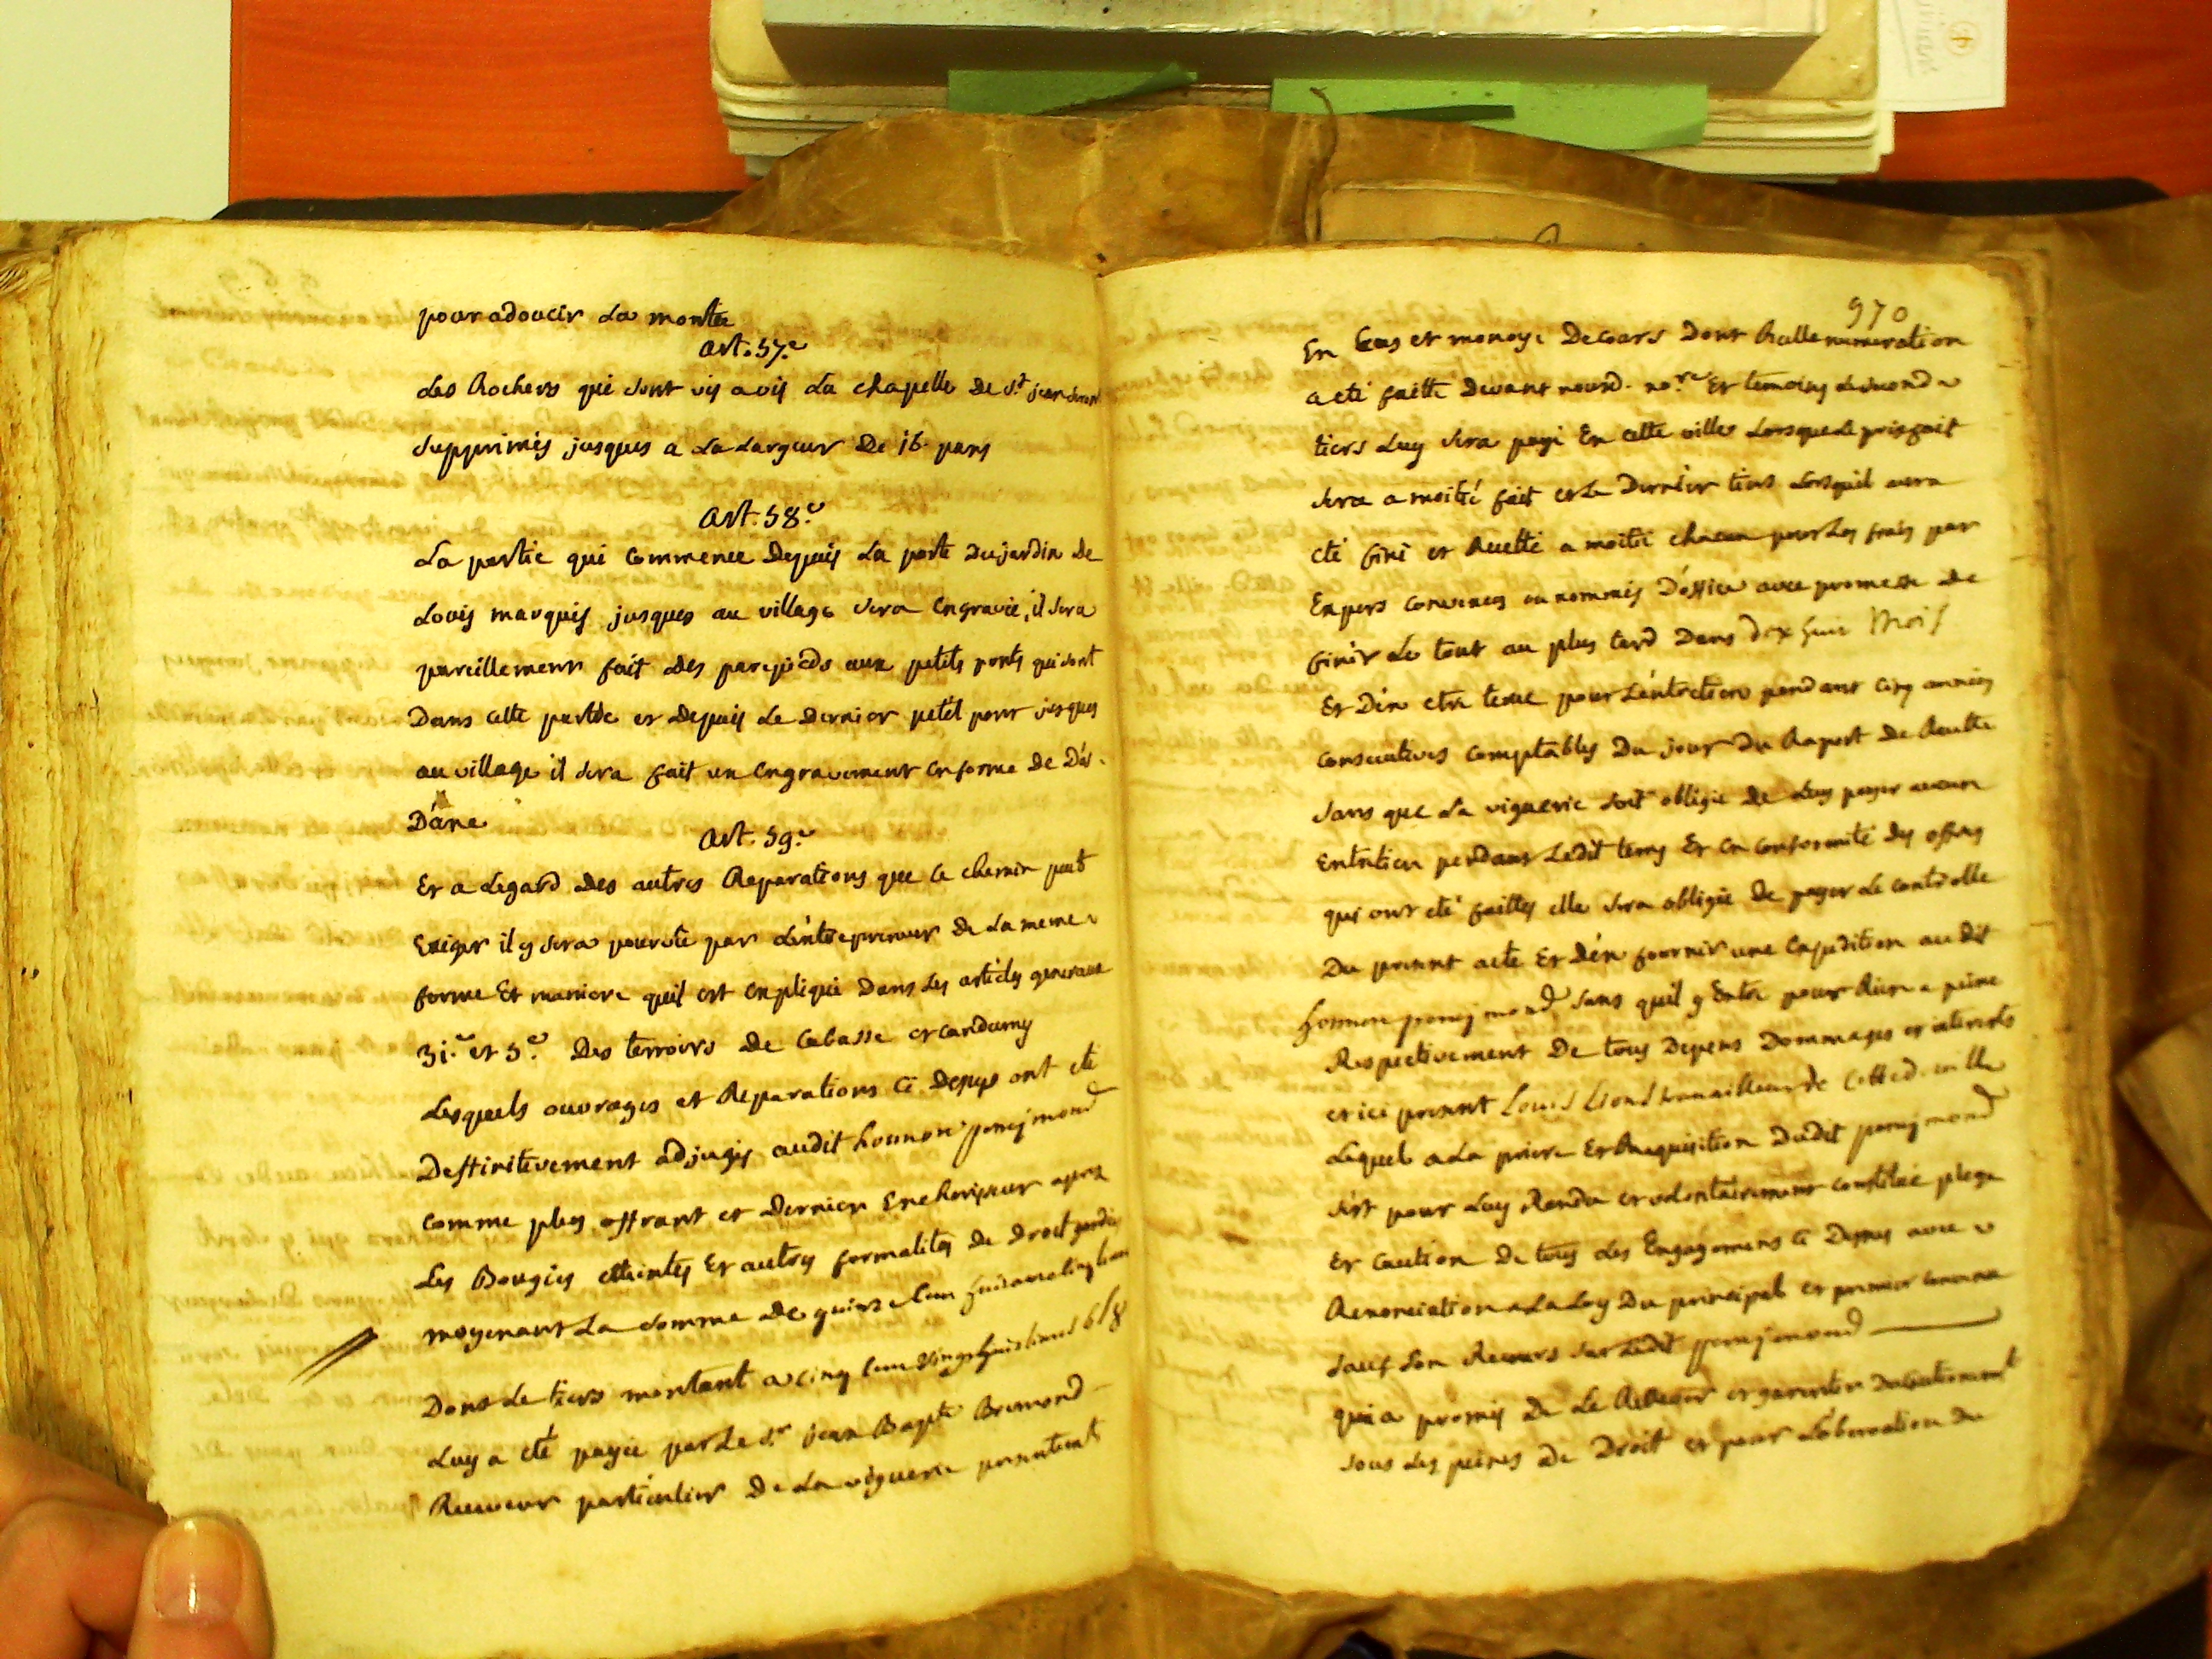 pour adoucir La montée
art. 57.e
Les Rochers qui sont vis a vis La chapelle De St jean seront
supprimés jusques a La Largeur De 16. pans
Art. 58.e
La partie qui commence Depuis La porte Du jardin De
Louis marquis jusques au village sera engravée, il sera
pareillement fait Des parapieds aux petits ponts qui sont
Dans cette partie et Depuis Le Dernier petit pont jusques
au village il sera fait un engravement en forme De Dos
D'áne
Art. 59.e
Et a Legard Des autres Reparations que ce chemin peut
Exiger il y sera pourvû par L'entrepreneur De La meme
forme Et maniere quil est expliqué Dans Les articles generaux
31.e et 5.e Des terroirs De Cabasse et candumy
Lesquels ouvrages et Reparations ci Dessus ont été
Deffinitivement adjugés audit honnoré poneymond
comme plus offrant et Dernier Encherisseur aprez
Les Bougies etteintes Et autres formalités De Droit gardées
moyenant La somme De quinze Cens huitante cinq livres
Dont Le tiers montant a cinq Cens vingt huit livres 6s 8
Luy a eté payée par Le sr jean Bapte Bremond
Receveur particulier De La viguerie presentement
970
En Ecus et monoye De cours Dont Reelle numeration
a eté faitte Devant nousd. no.re Et temoins Le second
tiers Luy sera payé En cette ville Lorsque Le prisfait
sera a moitié fait et Le Dernier tiers Lorsquil aura
eté fini et Recetté a moitié chacun pour Les frais par
Expers convenus ou nommés D'office avec promesse De
finir Le tout au plus tard Dans dix huit Mois
Et D'en etre tenu pour L'entretien pendant cinq années
consecutives comptables Du jour Du Raport De Recette
sans que La viguerie soit obligée De Luy payer aucun
Entretien pendant Ledit tems Et en conformité des offres
qui ont eté faittes elle sera obligée De payer Le controlle
Du present acte Et D'en fournir une Expedition audit
honnoré poneymond sans quil y Entre pour Rien a peine
Respectivement De tous Depens Dommages et interests
et ici present Louis Lions travailleur de Cette d. ville
Lequel a La priere Et Requisition Dudit poneymond
s'est pour Luy Rendu et volontairement constitué plege
Et Caution De tous Les Engagemens ci Dessus avec
Renonciation a La Loy Du principal et premier convenu
sauf son Recours sur Ledit poneymond
qui a promis De Le Relever et garentir
sous Les peines De Droit et pour L'observation Du